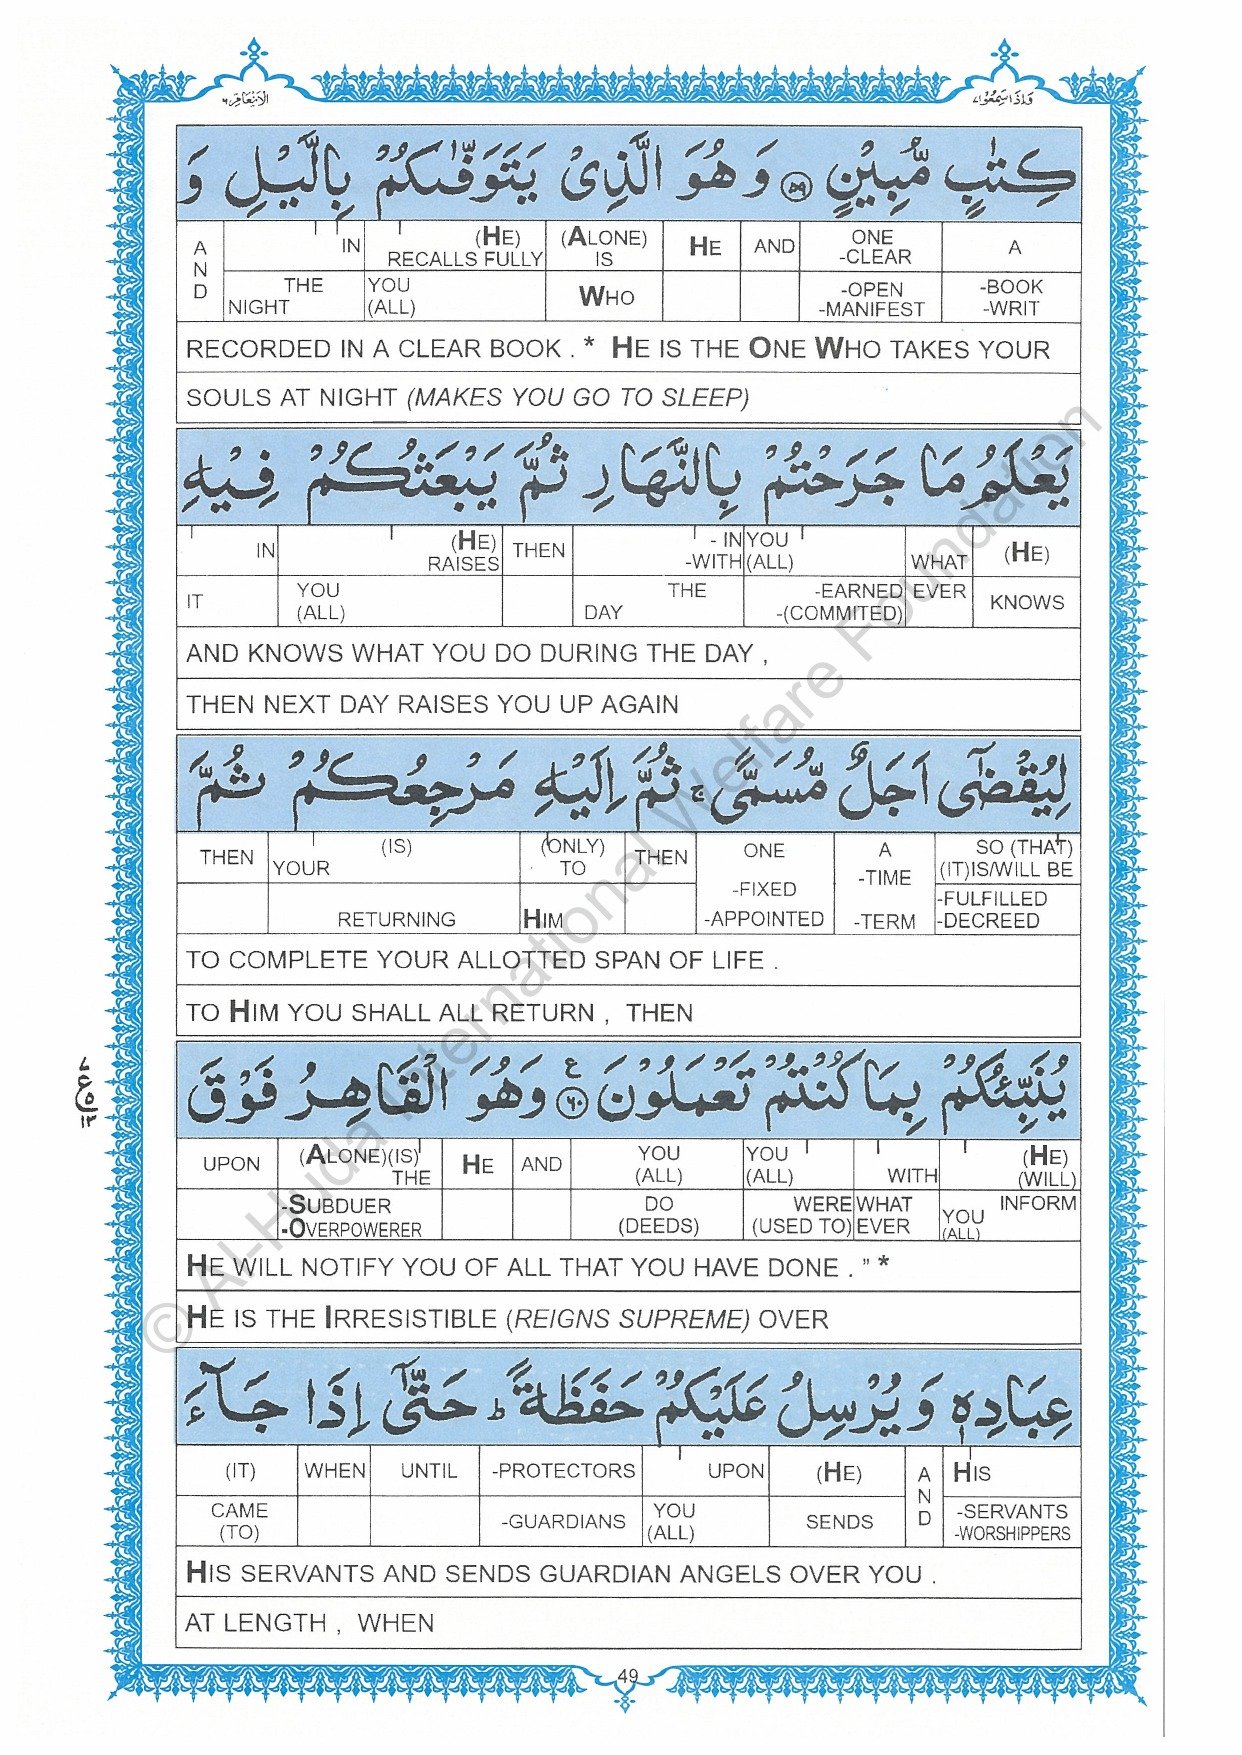 وَاِذَا سَمِعُوْا ٧
الْاَنْعَام ٦
كِتٰبٍ مُّبِيْنٍ ﴿٥٩﴾ وَ هُوَ الَّذِىْ يَتَوَفّٰىكُمْ بِالَّيْلِ وَ
A N D | IN | (HE) RECALLS FULLY | (ALONE) IS | HE | AND | ONE -CLEAR | A
THE NIGHT | YOU (ALL) | WHO | -OPEN -MANIFEST | -BOOK -WRIT
RECORDED IN A CLEAR BOOK . * HE IS THE ONE WHO TAKES YOUR
SOULS AT NIGHT (MAKES YOU GO TO SLEEP)
يَعْلَمُ مَا جَرَحْتُمْ بِالنَّهَارِ ثُمَّ يَبْعَثُكُمْ فِيْهِ
IN | (HE) RAISES | THEN | - IN -WITH | YOU (ALL) | WHAT | (HE)
IT | YOU (ALL) | THE DAY | -EARNED -(COMMITED) | EVER | KNOWS
AND KNOWS WHAT YOU DO DURING THE DAY ,
THEN NEXT DAY RAISES YOU UP AGAIN
لِيُقْضٰٓى اَجَلٌ مُّسَمًّى ۚ ثُمَّ اِلَيْهِ مَرْجِعُكُمْ ثُمَّ
THEN | YOUR (IS) | (ONLY) TO | THEN | ONE | A -TIME | SO (THAT) (IT)IS/WILL BE
RETURNING | HIM | -FIXED -APPOINTED | -TERM | -FULFILLED -DECREED
TO COMPLETE YOUR ALLOTTED SPAN OF LIFE .
TO HIM YOU SHALL ALL RETURN , THEN
يُنَبِّئُكُمْ بِمَا كُنْتُمْ تَعْمَلُوْنَ ﴿٦٠﴾ ع وَ هُوَ الْقَاهِرُ فَوْقَ
UPON | (ALONE)(IS) THE | HE | AND | YOU (ALL) | YOU (ALL) | WITH | (HE) (WILL)
-SUBDUER -OVERPOWERER | DO (DEEDS) | WERE (USED TO) | WHAT EVER | YOU (ALL) | INFORM
HE WILL NOTIFY YOU OF ALL THAT YOU HAVE DONE . ” *
HE IS THE IRRESISTIBLE (REIGNS SUPREME) OVER
عِبَادِهٖ وَ يُرْسِلُ عَلَيْكُمْ حَفَظَةً ؕ حَتّٰٓى اِذَا جَآءَ
(IT) | WHEN | UNTIL | -PROTECTORS | UPON | (HE) | A N D | HIS
CAME (TO) | -GUARDIANS | YOU (ALL) | SENDS | -SERVANTS -WORSHIPPERS
HIS SERVANTS AND SENDS GUARDIAN ANGELS OVER YOU .
AT LENGTH , WHEN
49
© Al-Huda International Welfare Foundation